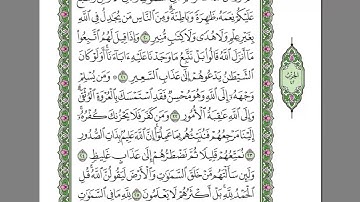 عَلَيْكُمْ نِعَمَهُۥ ظَٰهِرَةً وَبَاطِنَةً ۗ وَمِنَ ٱلنَّاسِ مَن يُجَٰدِلُ فِي ٱللَّهِ
بِغَيْرِ عِلْمٍ وَلَا هُدًى وَلَا كِتَٰبٍ مُّنِيرٍ ٢٠ وَإِذَا قِيلَ لَهُمُ ٱتَّبِعُوا۟
مَآ أَنزَلَ ٱللَّهُ قَالُوا۟ بَلْ نَتَّبِعُ مَا وَجَدْنَا عَلَيْهِ ءَابَآءَنَآ ۚ أَوَلَوْ كَانَ
ٱلشَّيْطَٰنُ يَدْعُوهُمْ إِلَىٰ عَذَابِ ٱلسَّعِيرِ ٢١ ۞ وَمَن يُسْلِمْ
وَجْهَهُۥٓ إِلَى ٱللَّهِ وَهُوَ مُحْسِنٌ فَقَدِ ٱسْتَمْسَكَ بِٱلْعُرْوَةِ ٱلْوُثْقَىٰ ۗ
وَإِلَى ٱللَّهِ عَٰقِبَةُ ٱلْأُمُورِ ٢٢ وَمَن كَفَرَ فَلَا يَحْزُنكَ كُفْرُهُۥٓ ۚ
إِلَيْنَا مَرْجِعُهُمْ فَنُنَبِّئُهُم بِمَا عَمِلُوٓا۟ ۚ إِنَّ ٱللَّهَ عَلِيمٌۢ بِذَاتِ ٱلصُّدُورِ
٢٣ نُمَتِّعُهُمْ قَلِيلًا ثُمَّ نَضْطَرُّهُمْ إِلَىٰ عَذَابٍ غَلِيظٍ ٢٤
وَلَئِن سَأَلْتَهُم مَّنْ خَلَقَ ٱلسَّمَٰوَٰتِ وَٱلْأَرْضَ لَيَقُولُنَّ ٱللَّهُ ۚ قُلِ
ٱلْحَمْدُ لِلَّهِ ۚ بَلْ أَكْثَرُهُمْ لَا يَعْلَمُونَ ٢٥ لِلَّهِ مَا فِي ٱلسَّمَٰوَٰتِ